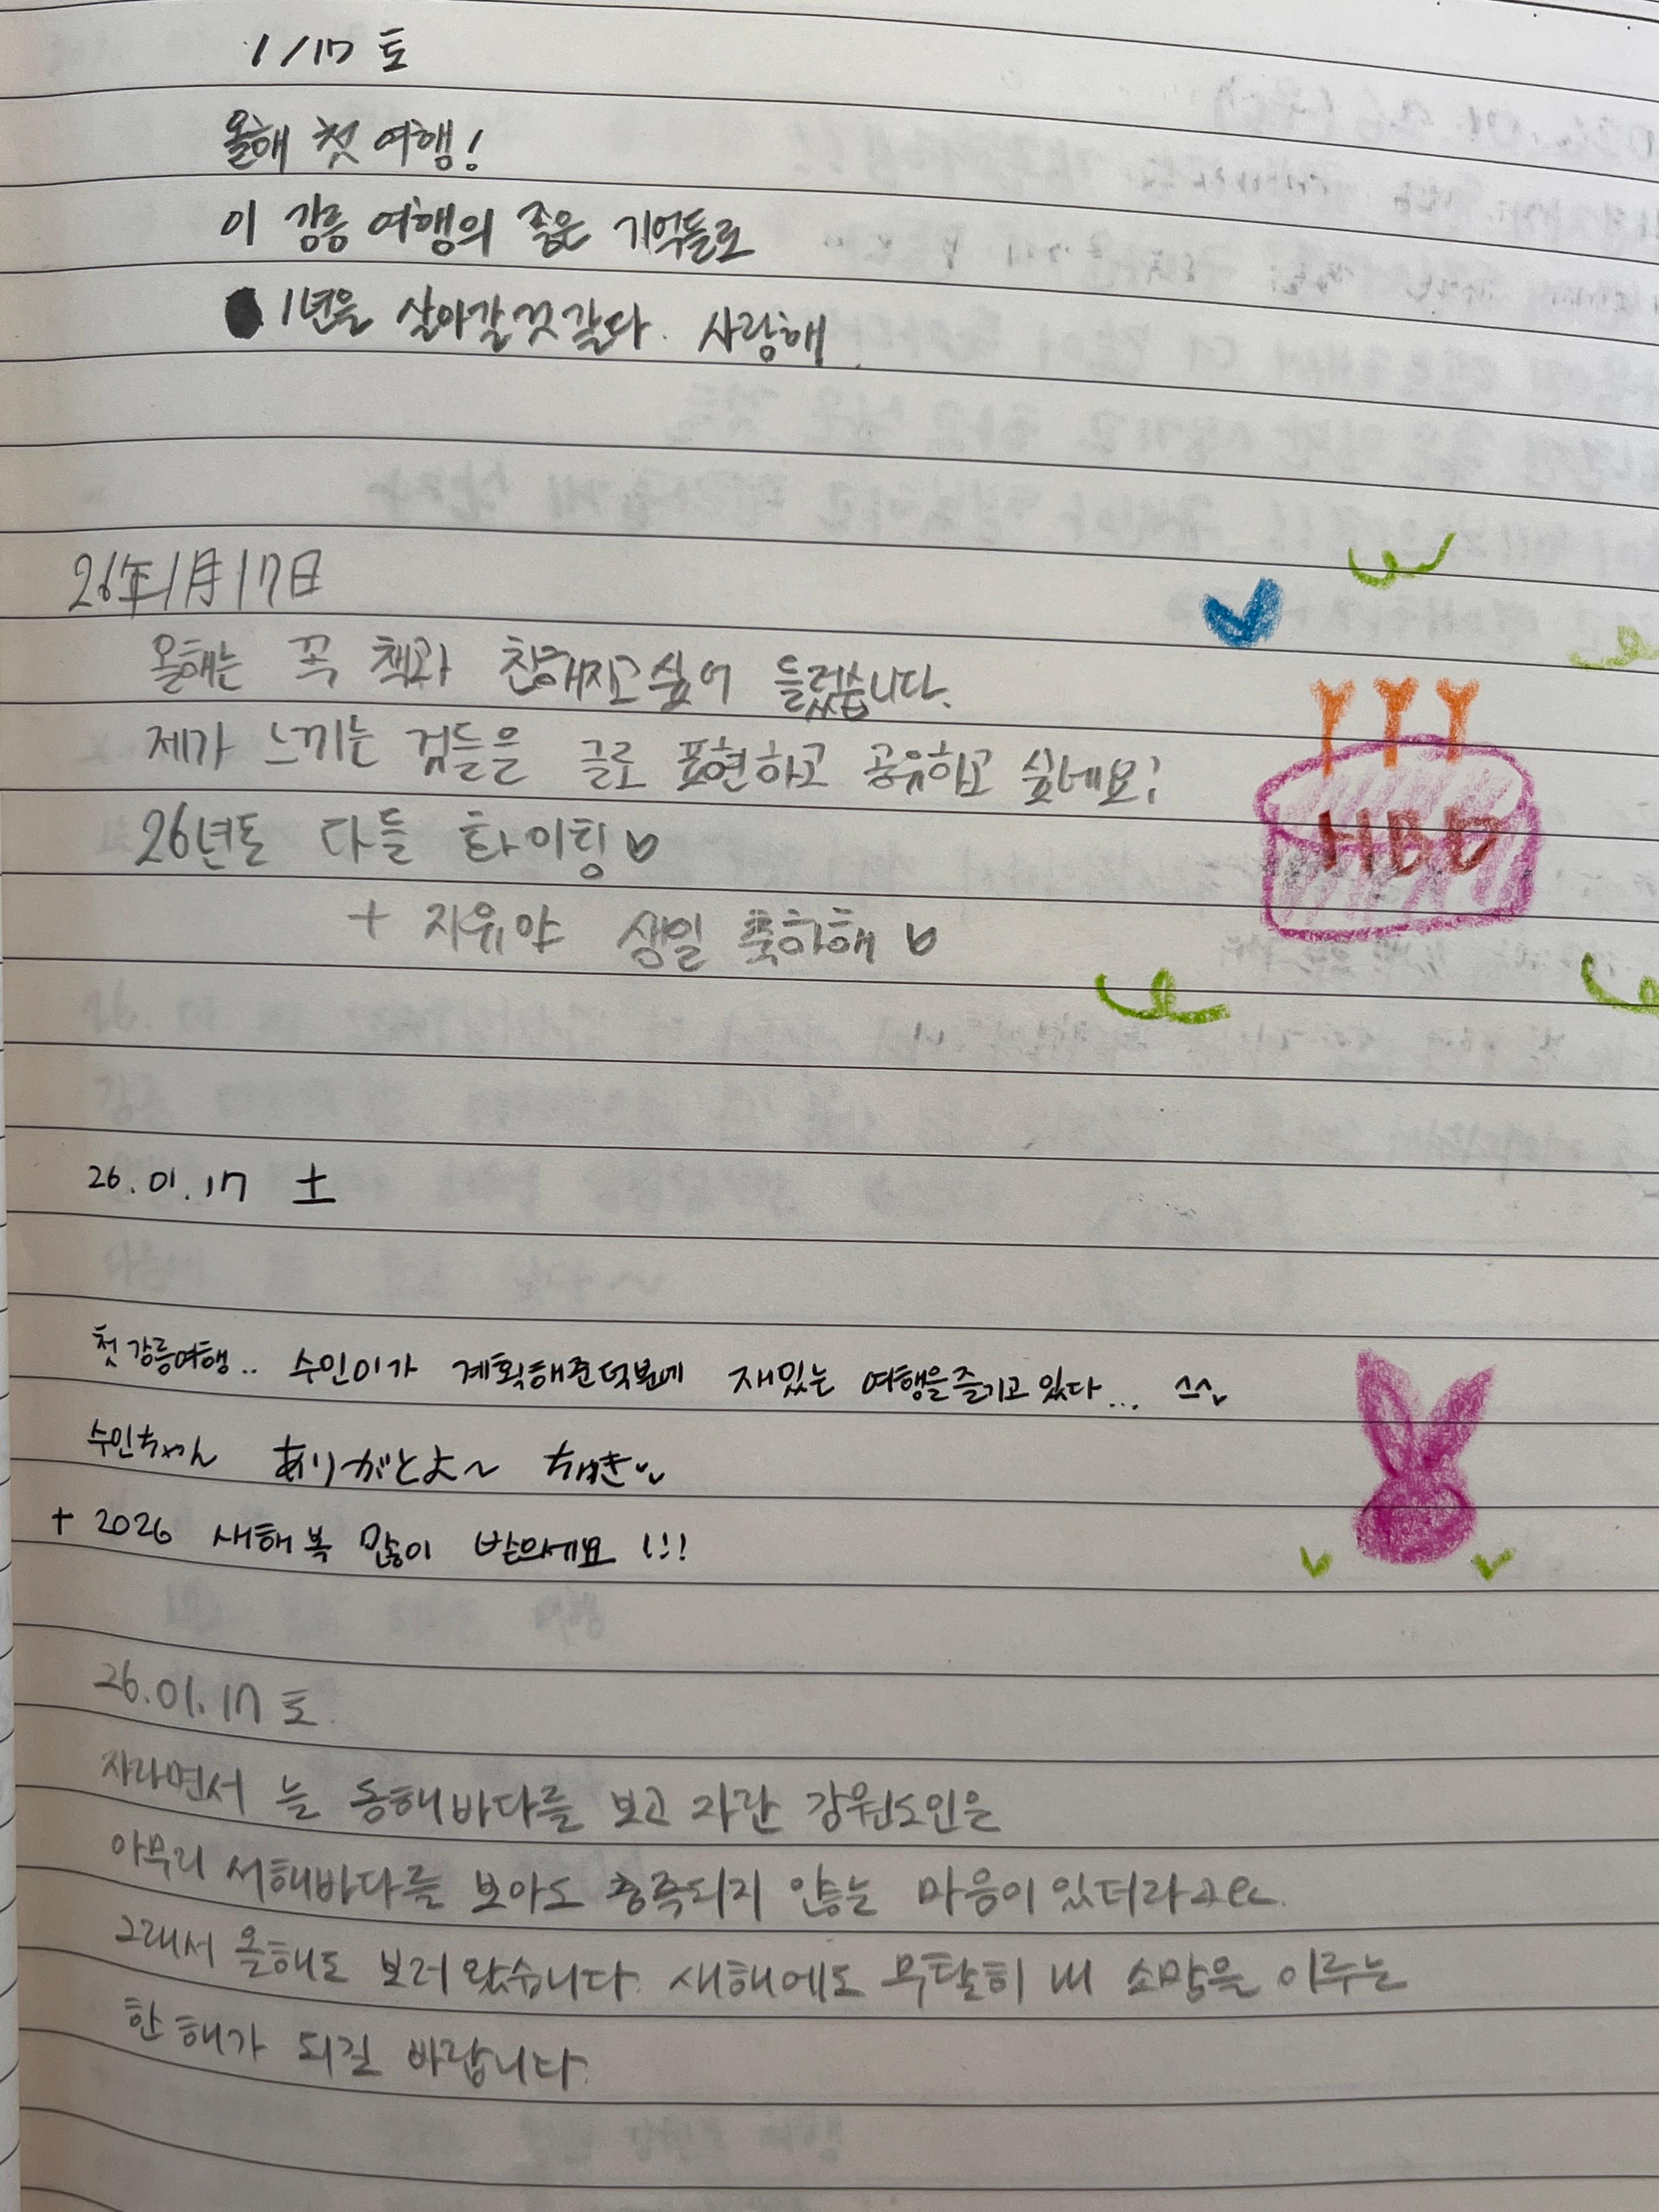 1/17 토
올해 첫 여행!
이 강릉 여행의 좋은 기억들로
1년을 살아갈것 같다. 사랑해
26年1月17日
올해는 꼭 책과 친해지고 싶어 들렀습니다.
제가 느끼는 검들을 글로 표현하고 공유하고 싶네요!
26년도 다들 화이팅♡
+ 지유야 생일 축하해♡
HBD
26.01.17 土
첫 강릉여행.. 수인이가 계획해준덕분에 재밌는 여행을 즐기고 있다... ^^
수인ちゃん ありがとよ~
+ 2026 새해 복 많이 받으세요 !!!
26.01.17 토.
자라면서 늘 동해바다를 보고 자란 강원도인은
아무리 서해바다를 보아도 충족되지 않는 마음이 있더라고요.
그래서 올해도 보러 왔습니다. 새해에도 무탈히 내 소망을 이루는
한 해가 되길 바랍니다.